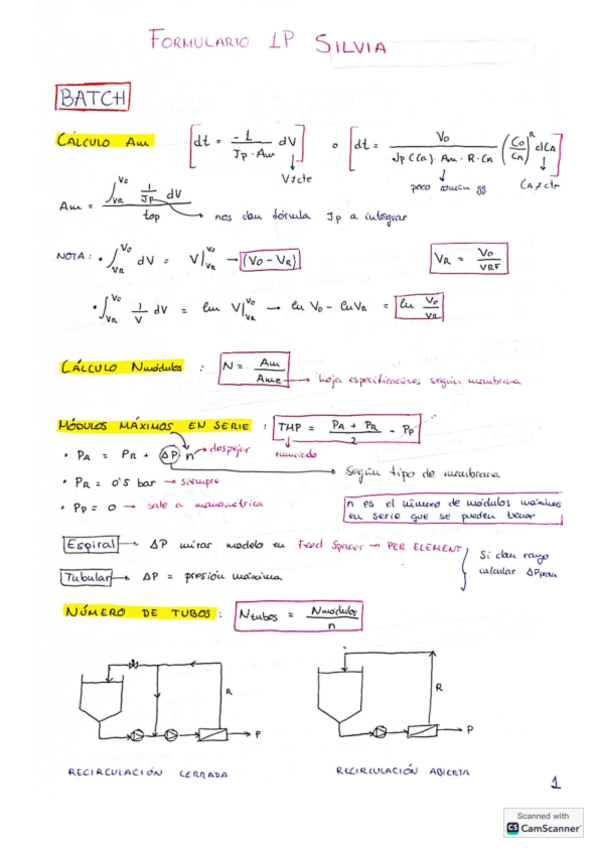 FORMULARIO 1P SILVIA
BATCH
CÁLCULO Am [dt = -1 / (Jp · Am) dV] o [dt = Vo / (Jp(CA) · Am · R · CA) (Co/CA)^R dCA]
V≠cte poco común gg CA≠cte
Am = ∫_VR^Vo 1/Jp dV / top → nos dan fórmula Jp a integrar
NOTA: • ∫_VR^Vo dV = V|_VR^Vo → (Vo - VR) VR = Vo / VRF
• ∫_VR^Vo 1/V dV = ln V|_VR^Vo → ln Vo - ln VR = ln Vo/VR
CÁLCULO Nmódulos : N = Am / Ame → hoja especificaciones según membrana
MÓDULOS MÁXIMOS EN SERIE : TMP = (PA + PR) / 2 - Pp
• PA = PR + ΔP · n → despejar enunciado
→ Según tipo de membrana
• PR = 0'5 bar → siempre
• Pp = 0 → sale a manométrica
n es el número de módulos máximos
en serie que se pueden tener
Espiral → ΔP mirar modelo en Feed Spacer → PER ELEMENT
Si dan rango
calcular ΔPmax
Tubular → ΔP = presión máxima
NÚMERO DE TUBOS : Ntubos = Nmódulos / n
R
P
R
P
RECIRCULACIÓN CERRADA RECIRCULACIÓN ABIERTA
1
Scanned with
CS CamScanner